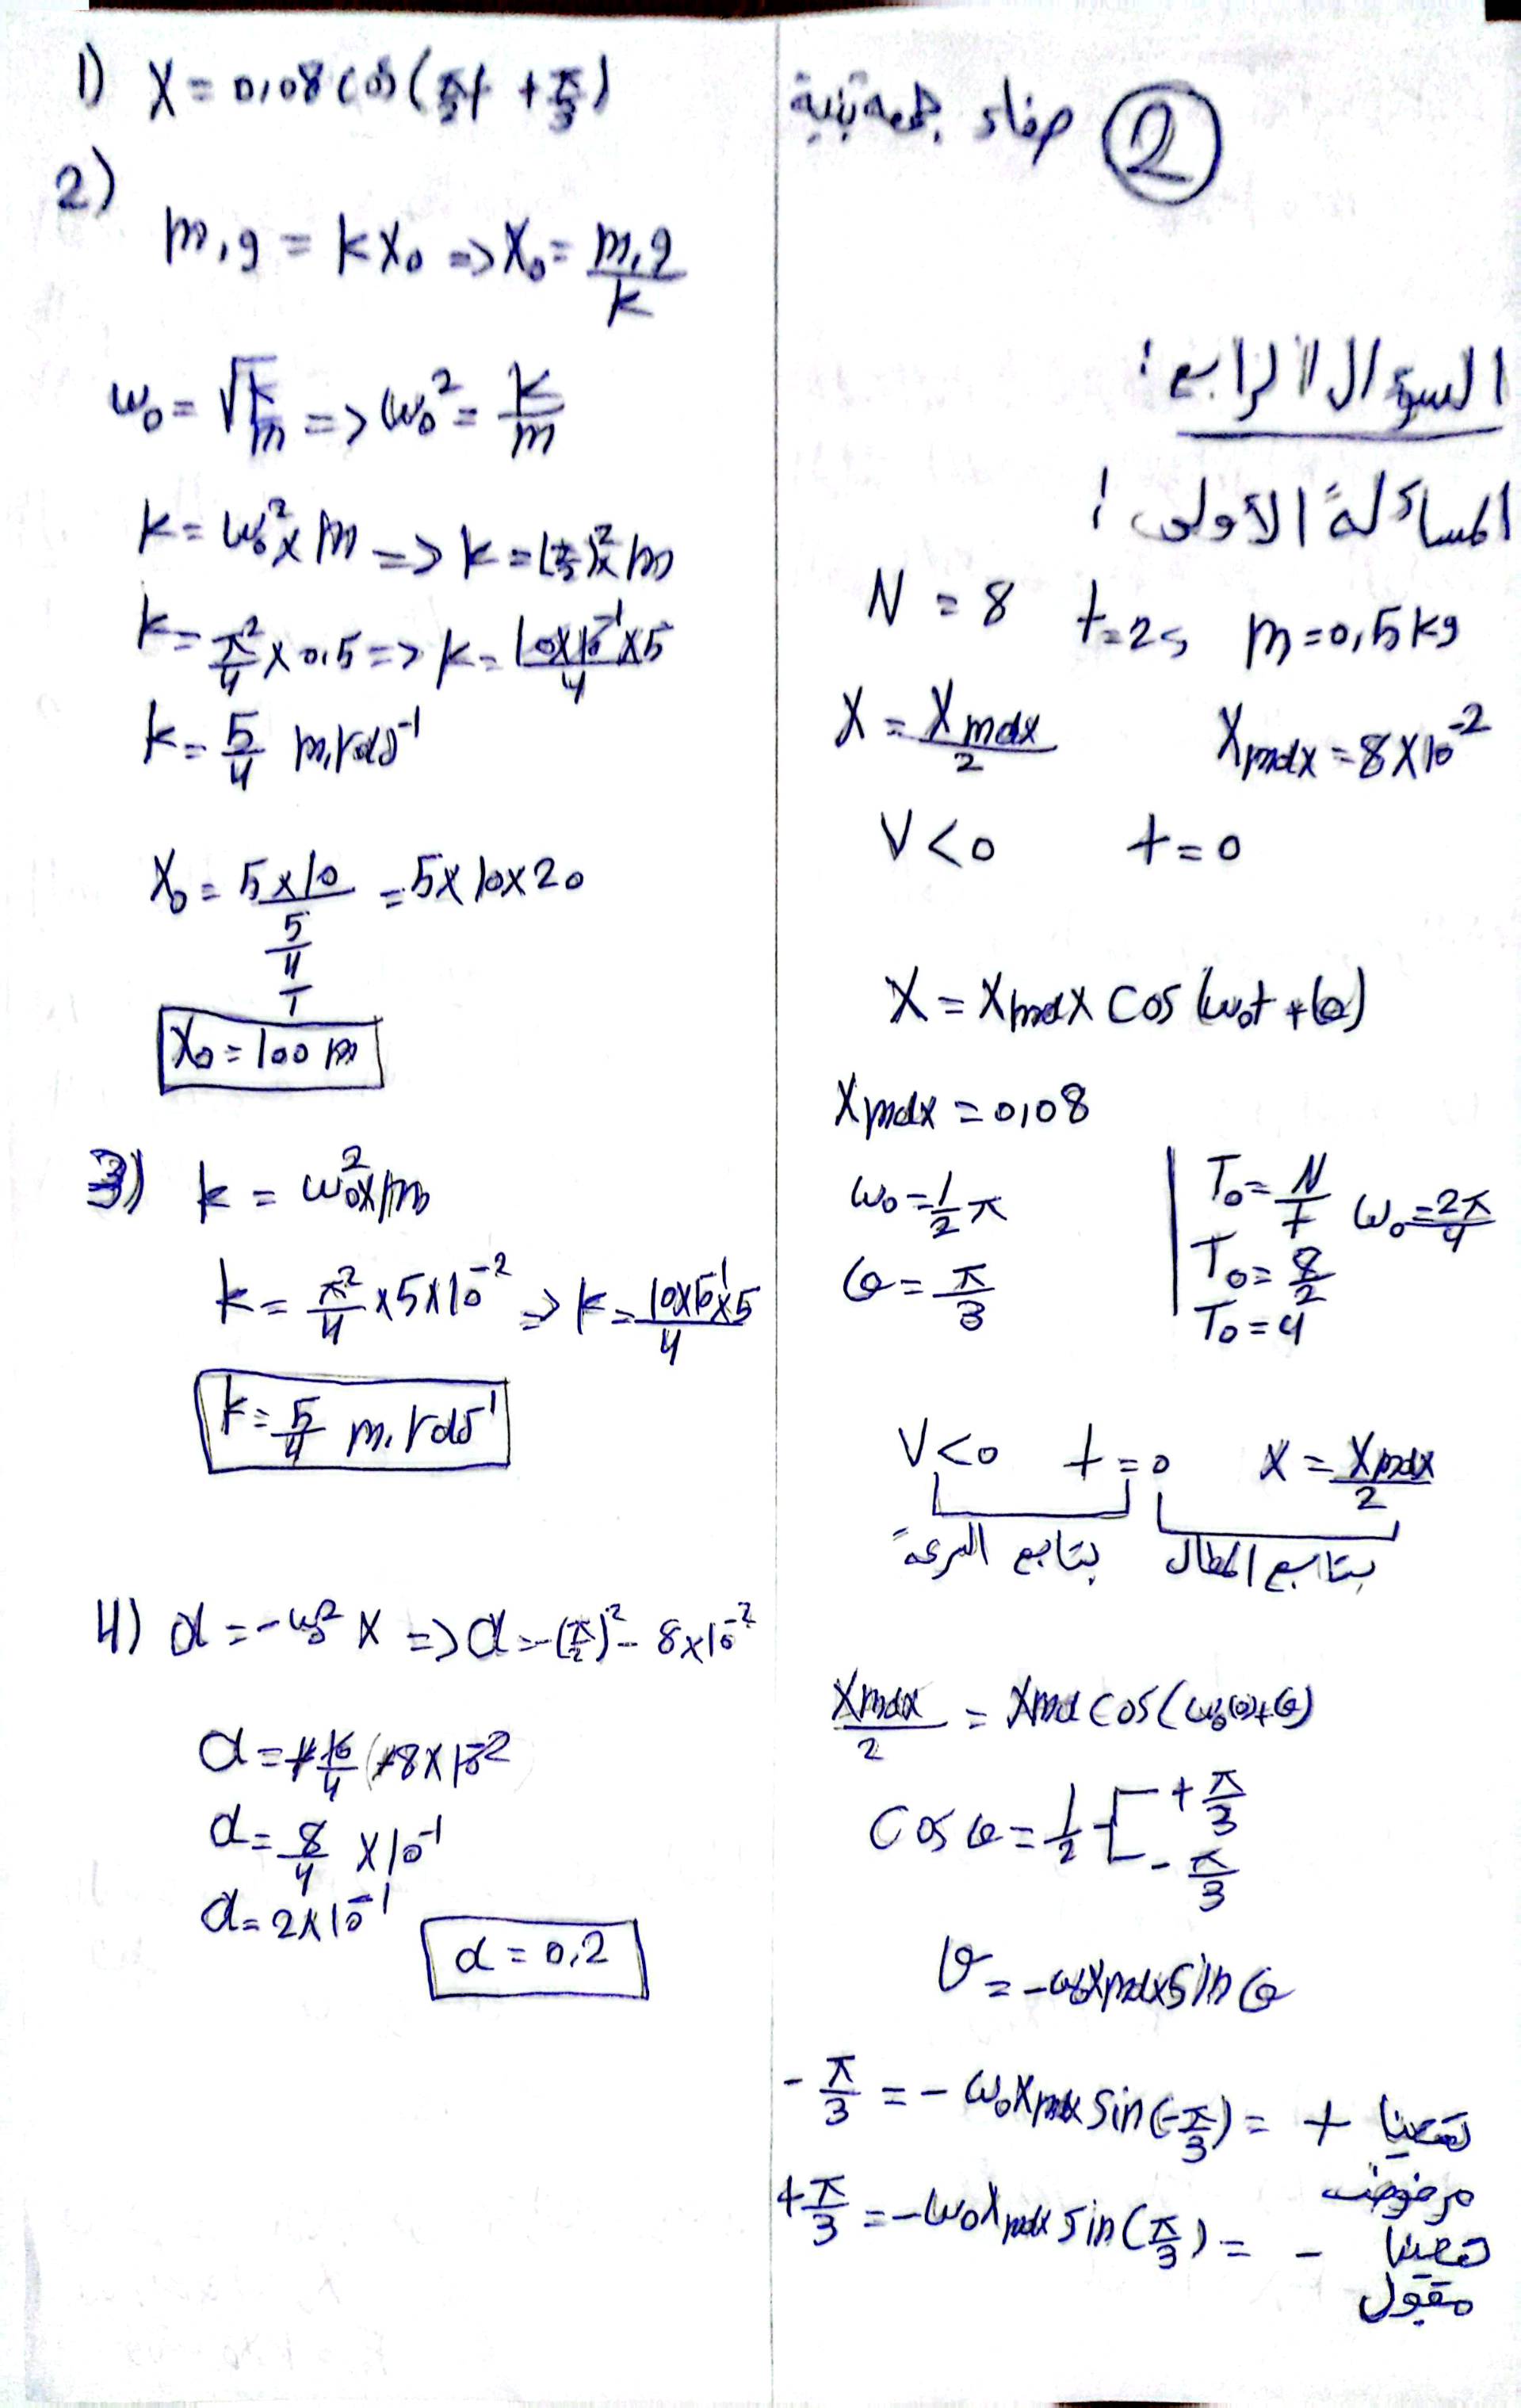 صفاء جمعه تينة 2
السؤال الرابع :
المسألة الأولى :
N = 8 t=2s m=0,5kg
X = Xmax/2 Xmax=8×10^-2
V<0 t=0
X = Xmax cos(ω0t+φ)
Xmax = 0,08
ω0 = 1/2 π
φ = π/3
T0 = N/t ω0 = 2π/4
T0 = 8/2
T0 = 4
V<0 t=0 X = Xmax/2
بتابع السرعة بتابع المطال
Xmax/2 = Xma cos(ω0(0)+φ)
cos φ = 1/2 +π/3
-π/3
v = -ω0Xmax sin φ
-π/3 = -ω0Xmax sin(-π/3) = + تعطينا
مرفوض
+π/3 = -ω0Xmax sin(π/3) = - تعطينا
مقبول
1) X = 0,08 cos(π/2 t + π/3)
2)
m.g = kX0 => X0 = m.g/k
ω0 = √k/m => ω0^2 = k/m
k = ω0^2 × m => k = (π/2)^2 × m
k = π^2/4 × 0.5 => k = 10×10^-1×5/4
k = 5/4 m.rads^-1
X0 = 5×10/5/4/1 = 5×10×20
X0 = 100 m
3) k = ω0^2×m
k = π^2/4 ×5×10^-2 => k = 10×10^-1×5/4
k = 5/4 m.rads^-1
4) a = -ω0^2 X => a = -(π/2)^2 - 8×10^-2
a = +10/4 (+8×10^-2
a = 8/4 ×10^-1
a = 2×10^-1
a = 0,2